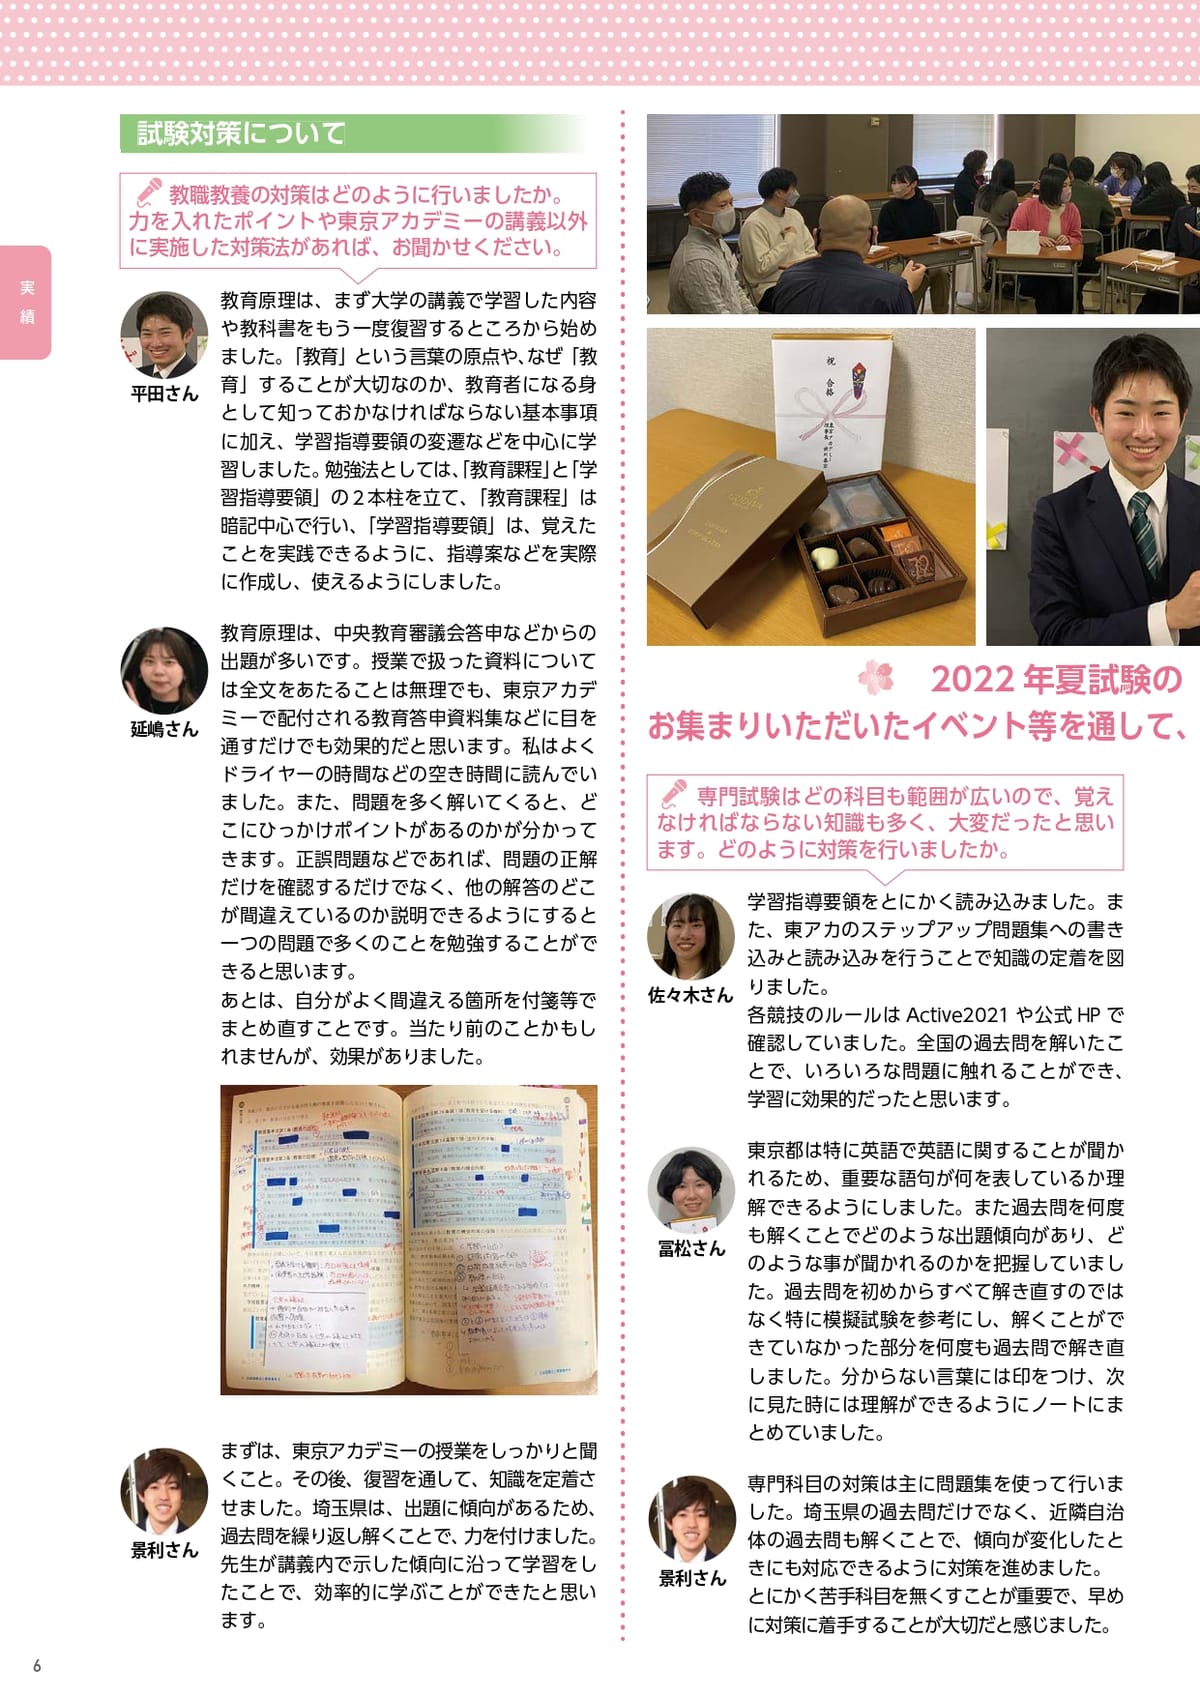 試験対策について
教職教養の対策はどのように行いましたか。
力を入れたポイントや東京アカデミーの講義以外
に実施した対策法があれば、お聞かせください。
実績
平田さん
教育原理は、まず大学の講義で学習した内容
や教科書をもう一度復習するところから始め
ました。「教育」という言葉の原点や、なぜ「教
育」することが大切なのか、教育者になる身
として知っておかなければならない基本事項
に加え、学習指導要領の変遷などを中心に学
習しました。勉強法としては、「教育課程」と「学
習指導要領」の2本柱を立て、「教育課程」は
暗記中心で行い、「学習指導要領」は、覚えた
ことを実践できるように、指導案などを実際
に作成し、使えるようにしました。
延嶋さん
教育原理は、中央教育審議会答申などからの
出題が多いです。授業で扱った資料について
は全文をあたることは無理でも、東京アカデ
ミーで配付される教育答申資料集などに目を
通すだけでも効果的だと思います。私はよく
ドライヤーの時間などの空き時間に読んでい
ました。また、問題を多く解いてくると、ど
こにひっかけポイントがあるのかが分かって
きます。正誤問題などであれば、問題の正解
だけを確認するだけでなく、他の解答のどこ
が間違えているのか説明できるようにすると
一つの問題で多くのことを勉強することがで
きると思います。
あとは、自分がよく間違える箇所を付箋等で
まとめ直すことです。当たり前のことかもし
れませんが、効果がありました。
景利さん
まずは、東京アカデミーの授業をしっかりと聞
くこと。その後、復習を通して、知識を定着さ
せました。埼玉県は、出題に傾向があるため、
過去問を繰り返し解くことで、力を付けました。
先生が講義内で示した傾向に沿って学習をし
たことで、効率的に学ぶことができたと思い
ます。
祝 合格
GODIVA
2022 年夏試験の
お集まりいただいたイベント等を通して、
専門試験はどの科目も範囲が広いので、覚え
なければならない知識も多く、大変だったと思い
ます。どのように対策を行いましたか。
佐々木さん
学習指導要領をとにかく読み込みました。ま
た、東アカのステップアップ問題集への書き
込みと読み込みを行うことで知識の定着を図
りました。
各競技のルールは Active2021 や公式 HP で
確認していました。全国の過去問を解いたこ
とで、いろいろな問題に触れることができ、
学習に効果的だったと思います。
冨松さん
東京都は特に英語で英語に関することが聞か
れるため、重要な語句が何を表しているか理
解できるようにしました。また過去問を何度
も解くことでどのような出題傾向があり、ど
のような事が聞かれるのかを把握していまし
た。過去問を初めからすべて解き直すのでは
なく特に模擬試験を参考にし、解くことがで
きていなかった部分を何度も過去問で解き直
しました。分からない言葉には印をつけ、次
に見た時には理解ができるようにノートにま
とめていました。
景利さん
専門科目の対策は主に問題集を使って行いま
した。埼玉県の過去問だけでなく、近隣自治
体の過去問も解くことで、傾向が変化したと
きにも対応できるように対策を進めました。
とにかく苦手科目を無くすことが重要で、早め
に対策に着手することが大切だと感じました。
6